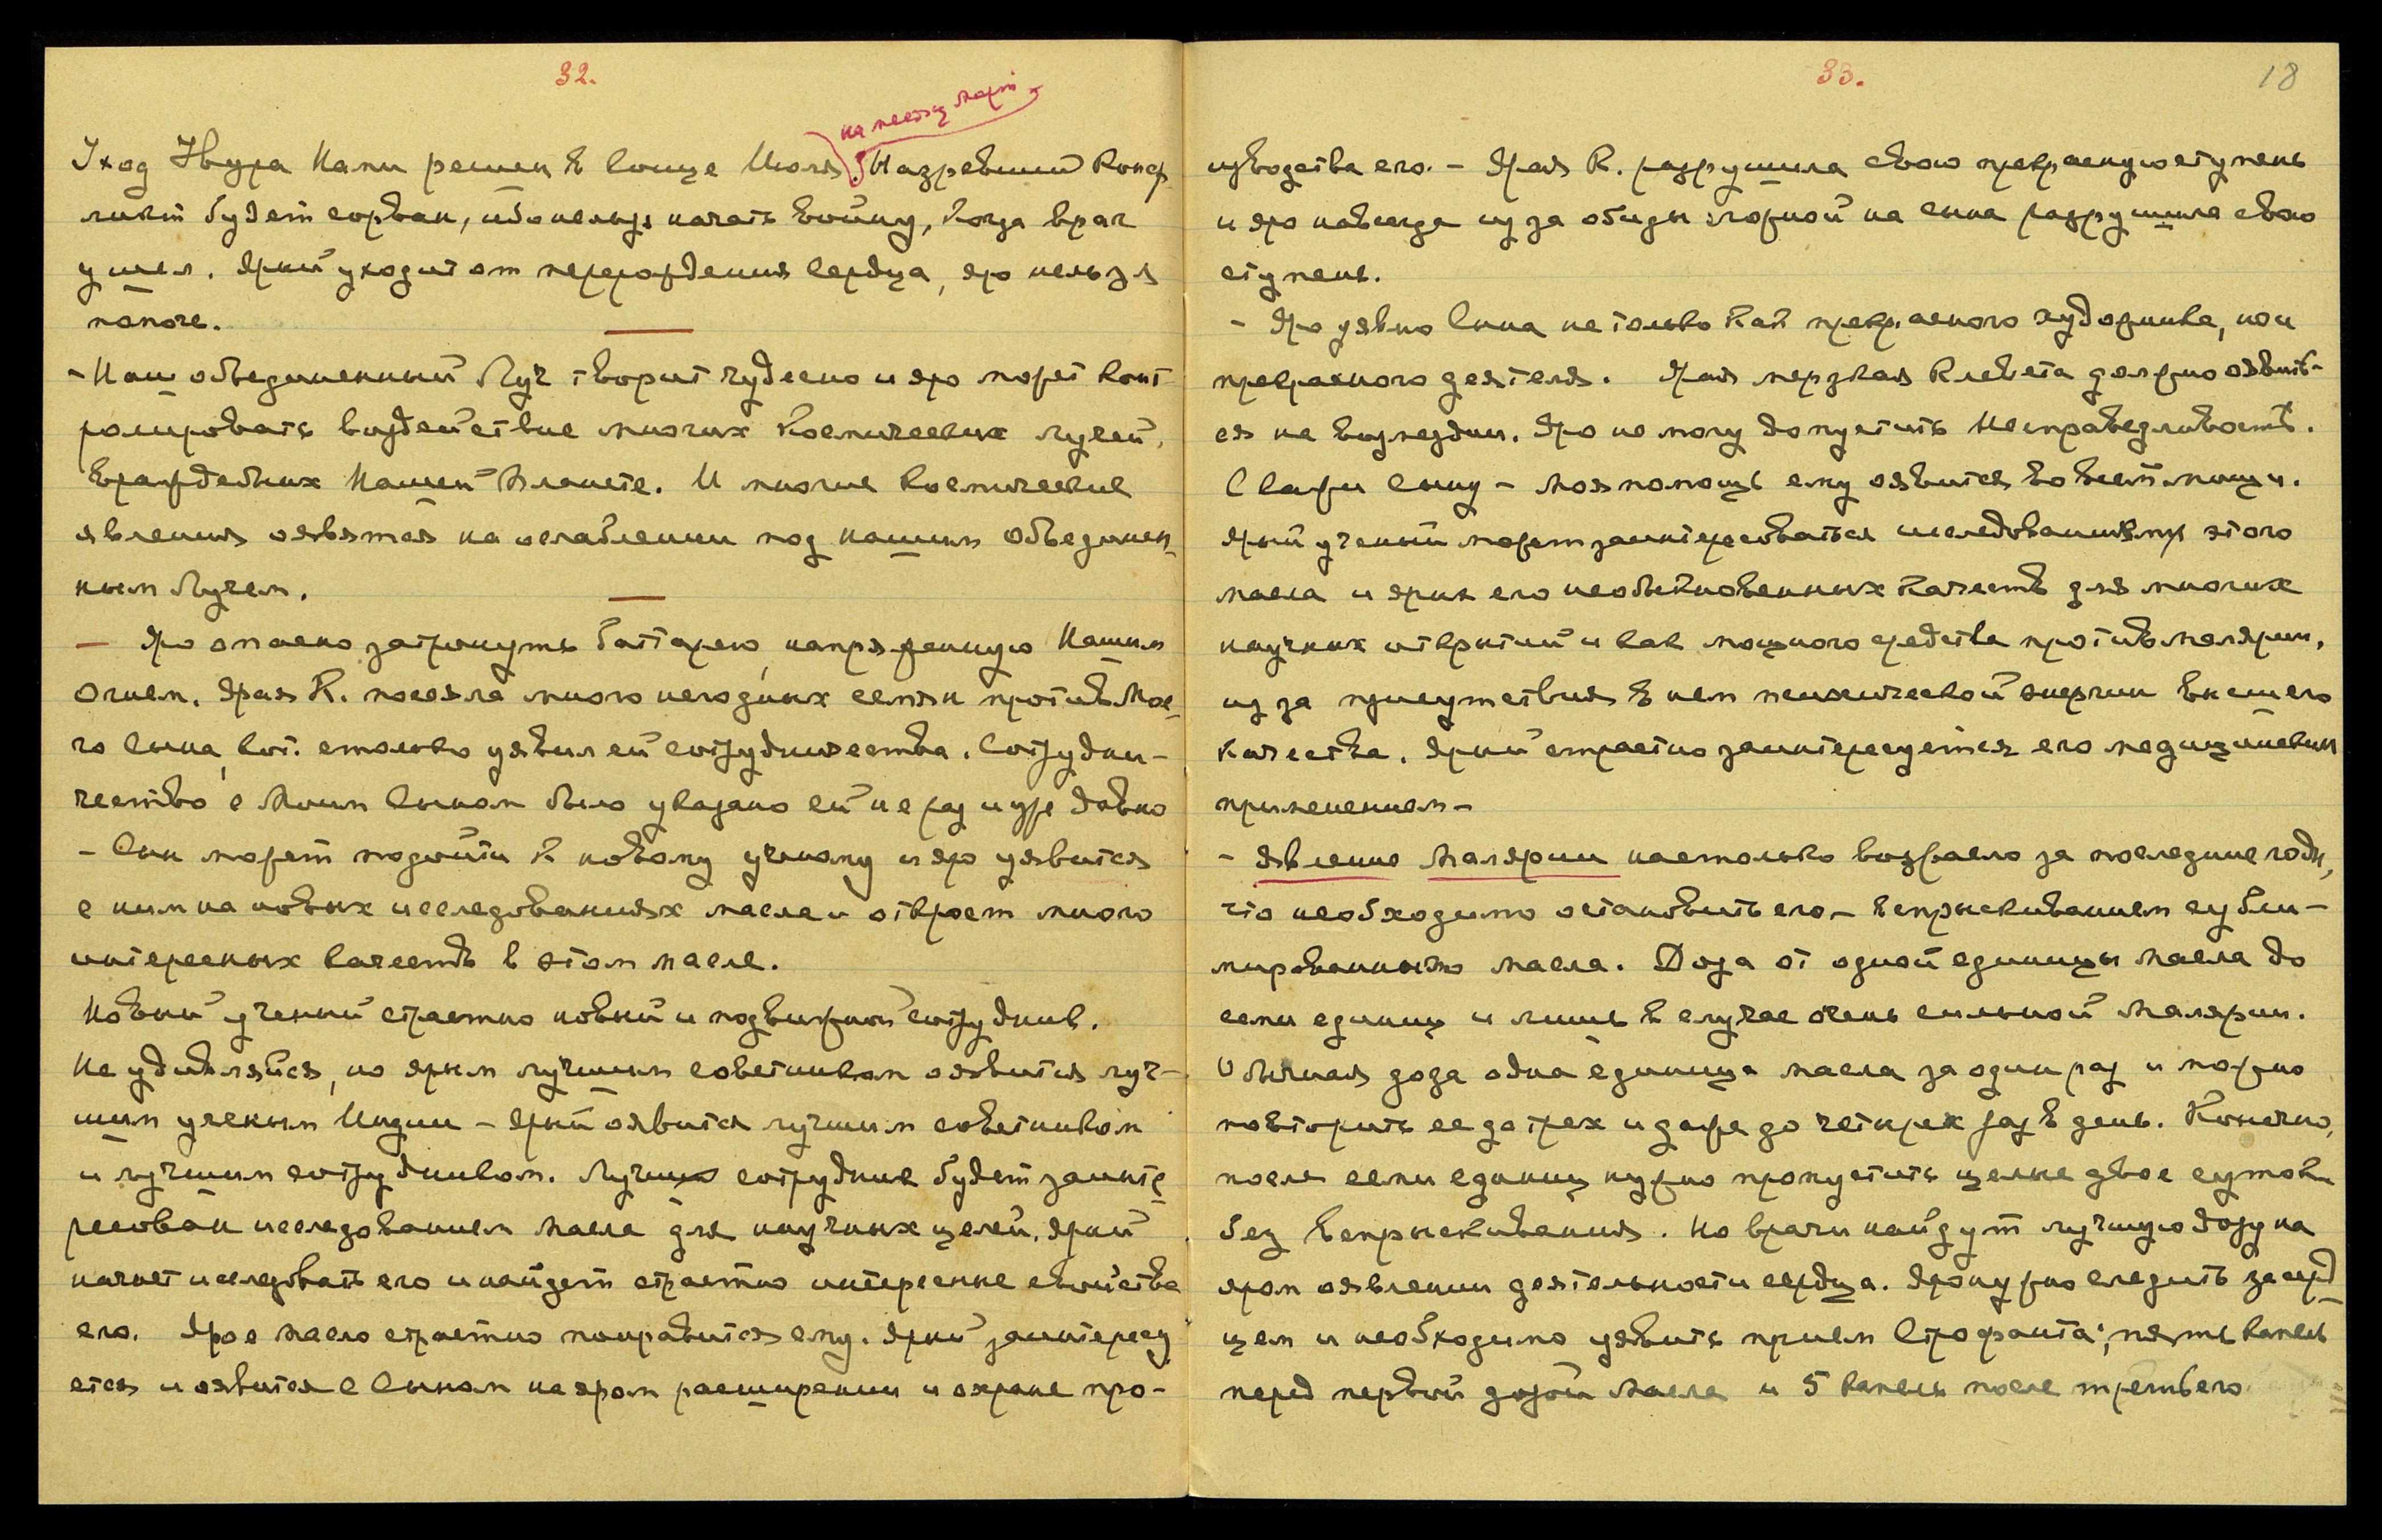 32.
на месяц март
Уход Неура Нами решен в конце Июля. Назревший конф
ликт будет сорван, ибо нельзя начать войну, когда враг
ушел. Ярый уходит от перерождения сердца, яро нельзя
помочь.
- Наш объединенный Луч творит чудесно и яро может конт
ролировать воздействие многих космических лучей,
враждебных Нашей планете. И многие космические
явления оявятся на ослаблении под нашим Объединен
ным Лучем.
- Яро опасно затронуть баттарею, напряженную Нашим
Огнем. Ярая К. посеяла много негодных семян против Мое
го Сына, кот. столько уявил ей сотрудничества. Сотрудни-
чество с Моим Сыном было указано ей не раз и уже давно
- Сын может подойти к новому ученому и яро уявится
с ним на новых исследованиях масла и откроет много
интересных качеств в этом масле.
Новый ученый страстно новый и подвижной сотрудник.
Не удивляйся, но ярым лучшим советником оявится луч-
шим ученым Индии - ярый оявится лучшим советником
и лучшим сотрудником. Лучший сотрудник будет заинте
ресован исследованием масла для научных целей. Ярый
начнет исследовать его и найдет страстно интересные свойства
его. Ярое масло страстно понравится ему. Ярый заинтересу
ется и оявится с Сыном на яром расширении и охране про-
33.
18
изводства его. - Ярая К. разрушила свою прекрасную ступень
и яро навсегда из за обиды злобной на сына разрушила свою
ступень.
- Яро уявлю Сына не только как прекрасного художника, но и
прекрасного деятеля. Ярая мерзкая клевета должно оявить-
ся не возмездии. Яро не могу допустить Несправедливость.
Скажи Сыну - Моя помощь ему оявится во всей мощи.
Ярый ученый может заинтересоваться исследованиями этого
масла и ярых его необыкновенных качеств для многих
научных открытий и как мощного средства против малярии,
из за присутствия в нем психической энергии высшего
качества. Ярый страстно заинтересуется его медицинским
применением -
- Явление Малярии настолько возросло за последние годы,
что необходимо остановить его - вспрыскиванием субли-
мированного масла. Доза от одной единицы масла до
семи единиц и лишь в случае очень сильной Малярии.
Обычная доза одна единица масла за один раз и можно
повторить ее до трех и даже до четырех раз в день. Конечно,
после семи единиц нужно пропустить целые двое суток
без вспрыскивания. Но врачи найдут лучшую дозу на
яром оявлении деятельности сердца. Яро нужно следить за серд
цем и необходимо уявить прием Строфанта; пять капель
перед первой дозой масла и 5 капель после третьего